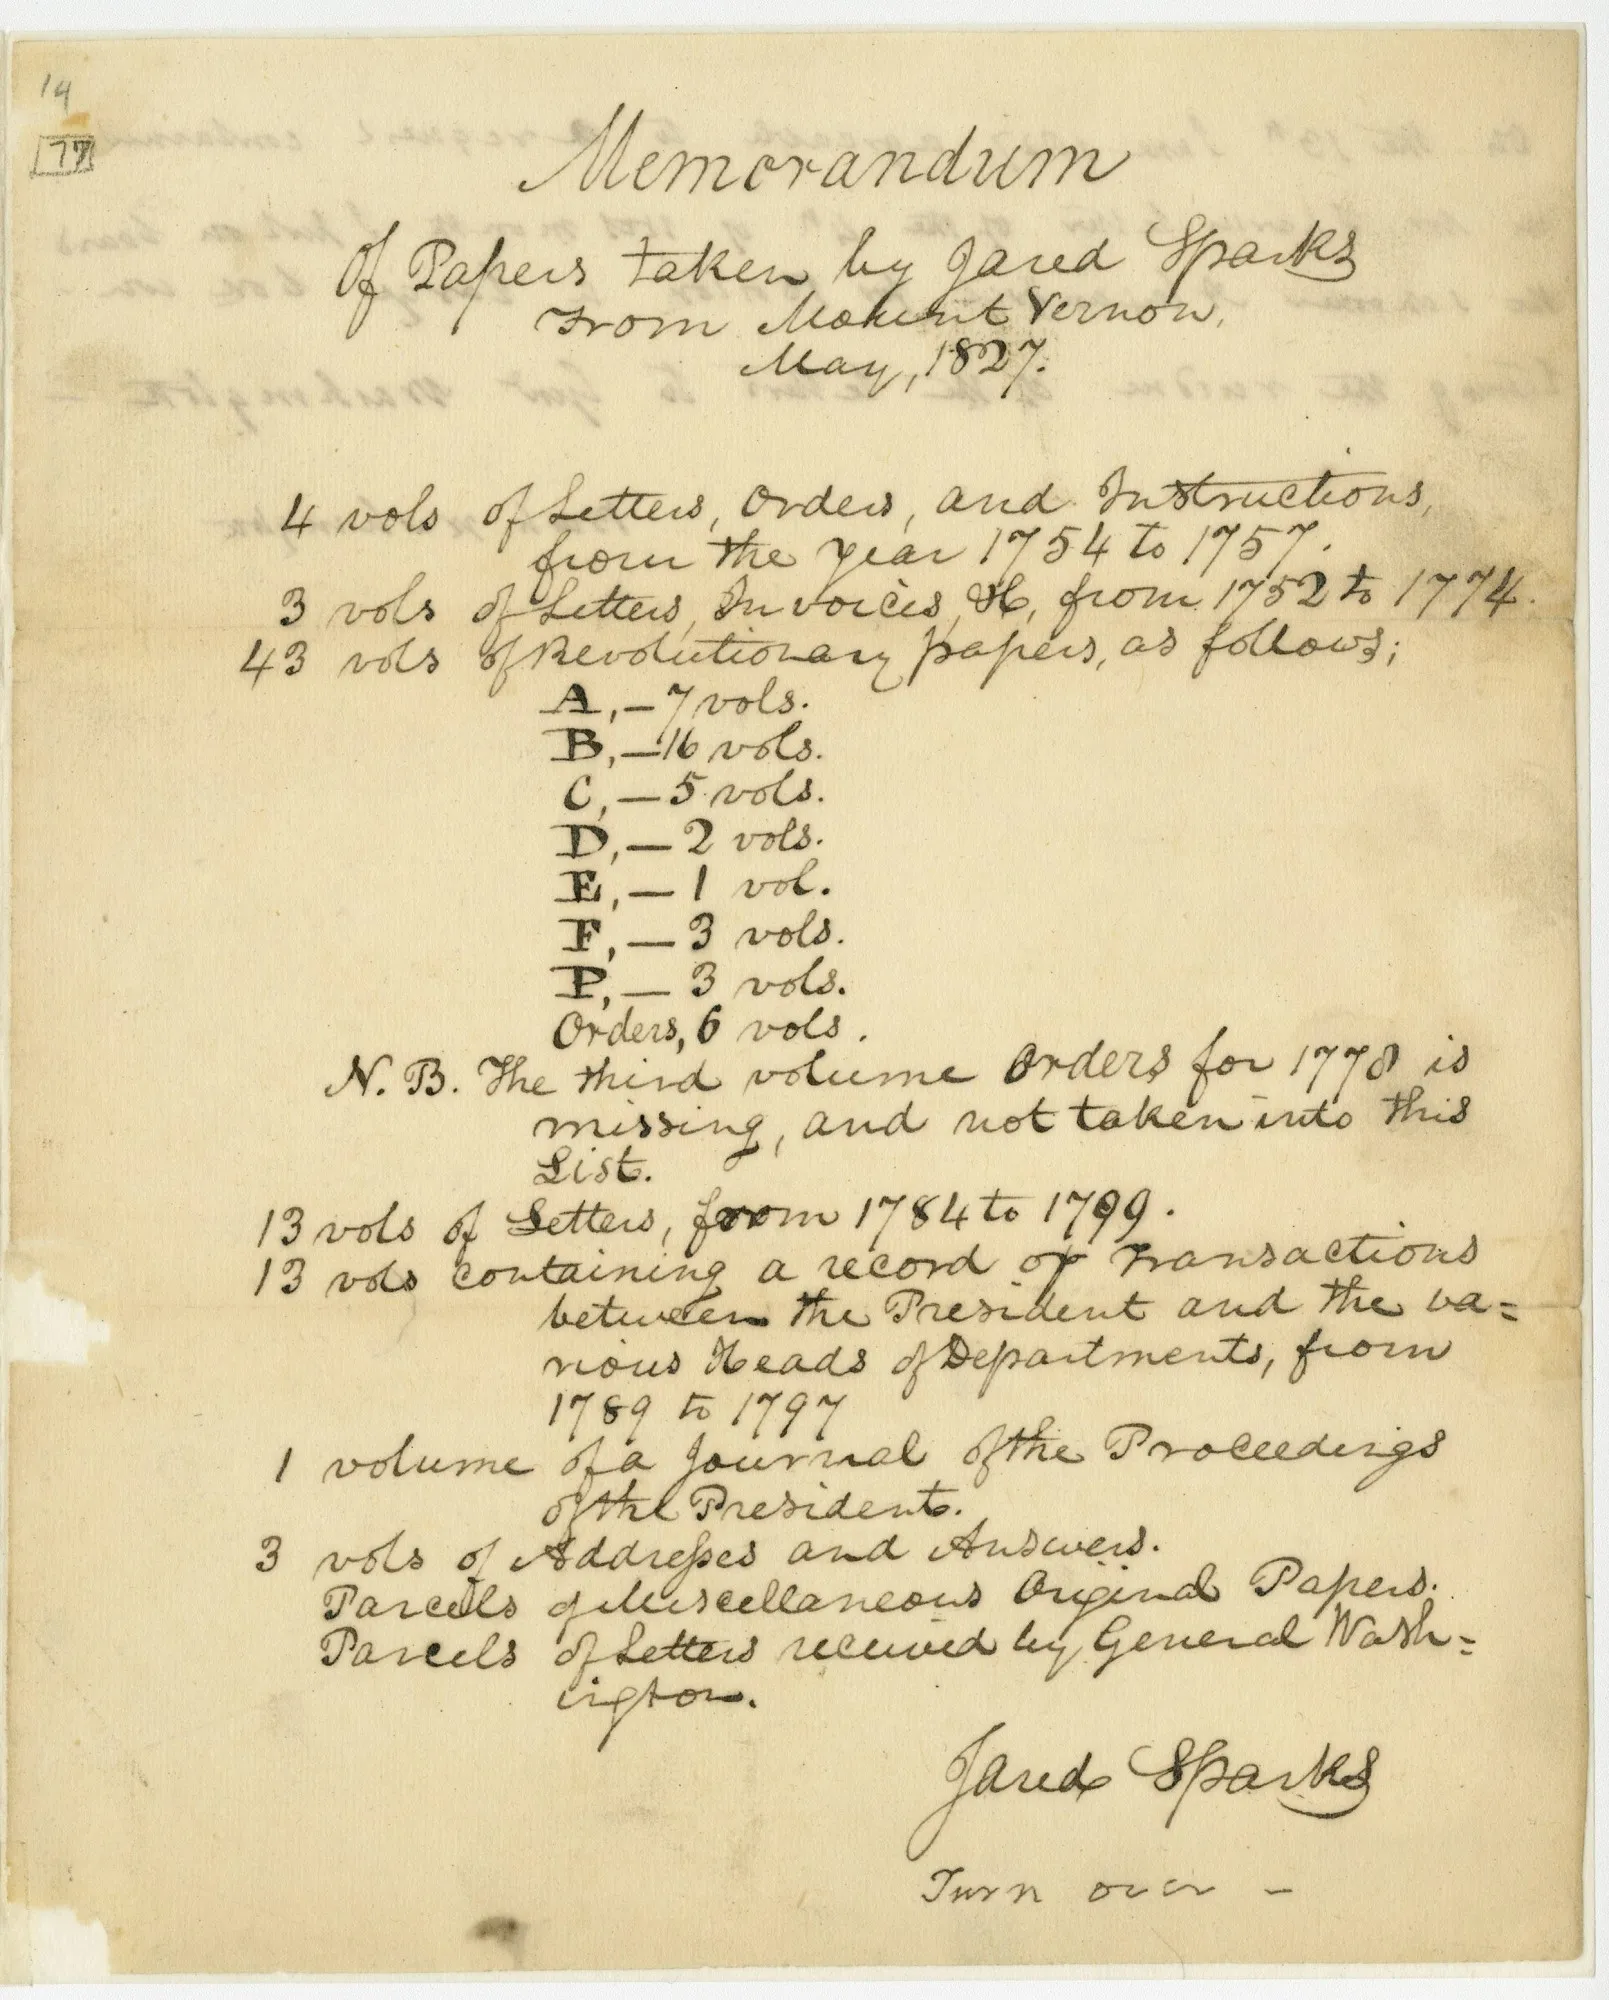 14
77
Memorandum
Of Papers taken by Jared Sparks
From Mount Vernon,
May, 1827.
4 vols of Letters, Orders, and Instructions,
from the year 1754 to 1757.
3 vols of Letters, Invoices, &c, from 1752 to 1774.
43 vols of Revolutionary papers, as follows;
A, — 7 vols.
B, — 16 vols.
C, — 5 vols.
D, — 2 vols.
E, — 1 vol.
F, — 3 vols.
P, — 3 vols.
Orders, 6 vols.
N. B. The third volume Orders for 1778 is
missing, and not taken into this
List.
13 vols of Letters, from 1784 to 1799.
13 vols containing a record of Transactions
between the President and the va=
rious Heads of Departments, from
1789 to 1797
1 volume of a Journal of the Proceedings
of the President.
3 vols of Addresses and Answers.
Parcels of Miscellaneous Original Papers.
Parcels of Letters received by General Wash=
ington.
Jared Sparks
Turn over —